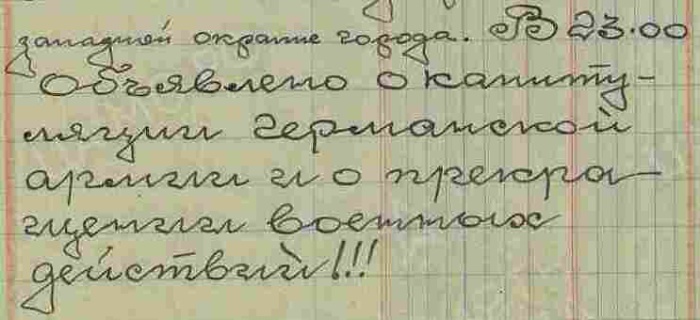 западной окраине города. В 23.00
Объявлено о капиту-
ляции Германской
армии и о прекра-
щении военных
действий!!!